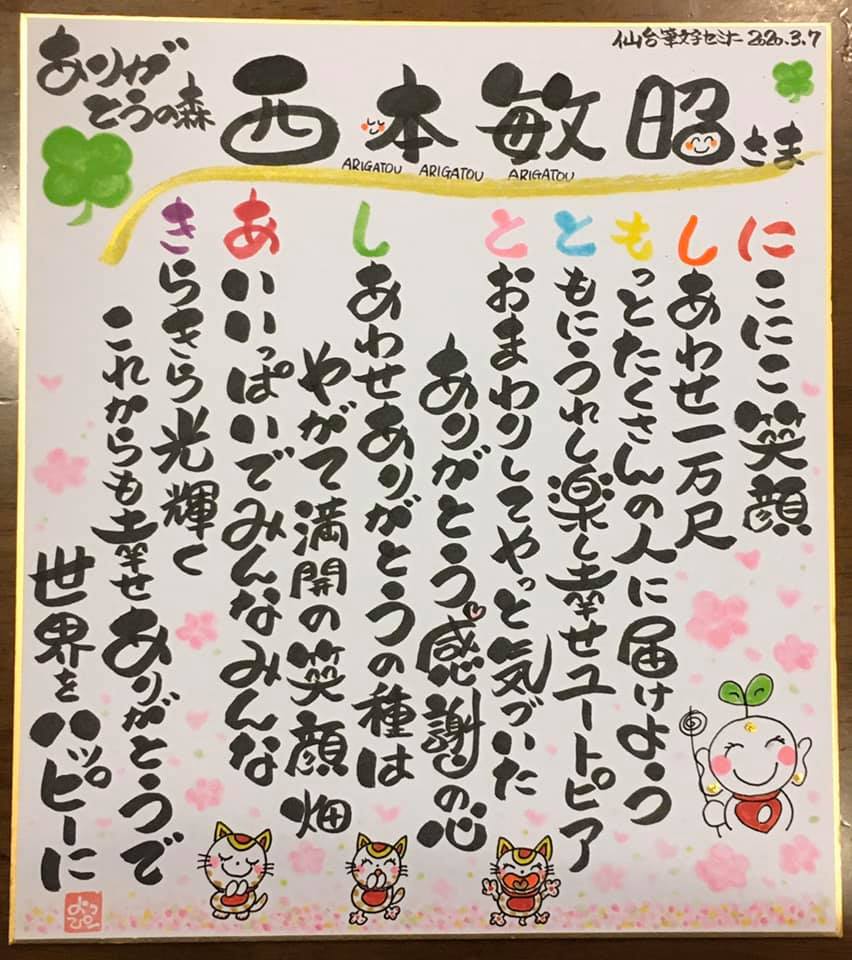 仙台筆文字セミナー 2020.3.7
ありが
とうの森
西本敏昭さま
ARIGATOU ARIGATOU ARIGATOU
にこにこ笑顔
しあわせ一万尺
もっとたくさんの人に届けよう
ともにうれし楽し幸せユートピア
とおまわりしてやっと気づいた
ありがとう感謝の心
しあわせありがとうの種は
やがて満開の笑顔畑
あいいっぱいでみんなみんな
きらきら光輝く
これからも幸せありがとうで
世界をハッピーに